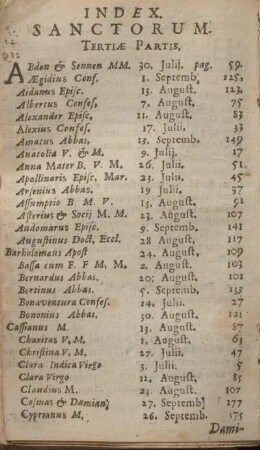 INDEX.
SANCTORUM.
TERTIÆ PARTIS.
ABdon & Sennen MM. 30. Julij. pag. 59.
Ægidius Conf. 1. Septemb. 125.
Aidanus Episc. 13. August. 123.
Albertus Confes. 7. August. 75
Alexander Episc. 11. August. 83
Alexius Confes. 17. Julii. 33
Amatus Abbas. 13. Septemb. 149
Anatolia V. & M. 9. Julij. 17
Anna Mater B. V. M. 26. Julij. 51.
Apollinaris Episc. Mar. 23. Julij. 45
Arsenius Abbas. 19 Julij. 37
Assumptio B. M. V. 15. August. 91
Asterius & Socij M. M. 23. August. 107
Audomarus Episc. 9. Septemb. 141
Augustinus Doct. Eccl. 28 August. 117
Bartholomæus Apost 24. August. 109
Bassa cum F. F M. M. 2. August. 103
Bernardus Abbas. 20. August. 101
Bertinus Abbas. 5. Septemb. 133
Bonaventura Confes. 14. Julij. 27
Bononius Abbas. 30. August. 121
Cassianus M. 13. August. 87
Charitas V. M. 1. August. 63
Christina V. M. 27. Julii. 47
Clara Indica Virgo 3. Julij. 5
Clara Virgo 12. August. 85
Claudius M. 23. August. 107
Cosmas & Damian. 27. Septemb. 177
Cyprianus M. 26. Septemb. 175
Dami-